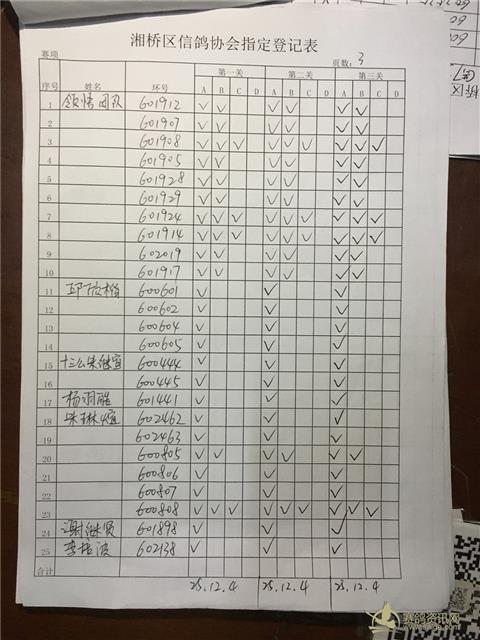 湘桥区信鸽协会指定登记表
赛项 页数：3
序号 姓名 环号 第一关 第二关 第三关
A B C D A B C D A B C D
1 领悟团队 601912 ✓ ✓ ✓ ✓ ✓ ✓
2 601907 ✓ ✓ ✓ ✓ ✓ ✓
3 601908 ✓ ✓ ✓ ✓ ✓ ✓ ✓ ✓ ✓
4 601905 ✓ ✓ ✓ ✓ ✓ ✓
5 601928 ✓ ✓ ✓ ✓ ✓ ✓
6 601929 ✓ ✓ ✓ ✓ ✓ ✓
7 601924 ✓ ✓ ✓ ✓ ✓ ✓ ✓ ✓ ✓
8 601914 ✓ ✓ ✓ ✓ ✓ ✓ ✓ ✓ ✓
9 602019 ✓ ✓ ✓ ✓ ✓ ✓
10 601917 ✓ ✓ ✓ ✓ ✓ ✓
11 600601 ✓ ✓ ✓
12 600602 ✓ ✓ ✓
13 600604 ✓ ✓ ✓
14 600605 ✓ ✓ ✓
15 600444 ✓ ✓ ✓
16 600445 ✓ ✓ ✓
17 601441 ✓ ✓ ✓
18 602462 ✓ ✓ ✓
19 602463 ✓ ✓ ✓
20 600805 ✓ ✓ ✓ ✓ ✓ ✓
21 600806 ✓ ✓ ✓
22 600807 ✓ ✓ ✓
23 600808 ✓ ✓ ✓ ✓ ✓ ✓ ✓ ✓ ✓
24 谢继贤 601898 ✓ ✓ ✓
25 602138 ✓ ✓ ✓
合计
25.12.4 25.12.4 25.12.4
赛鸽资讯网